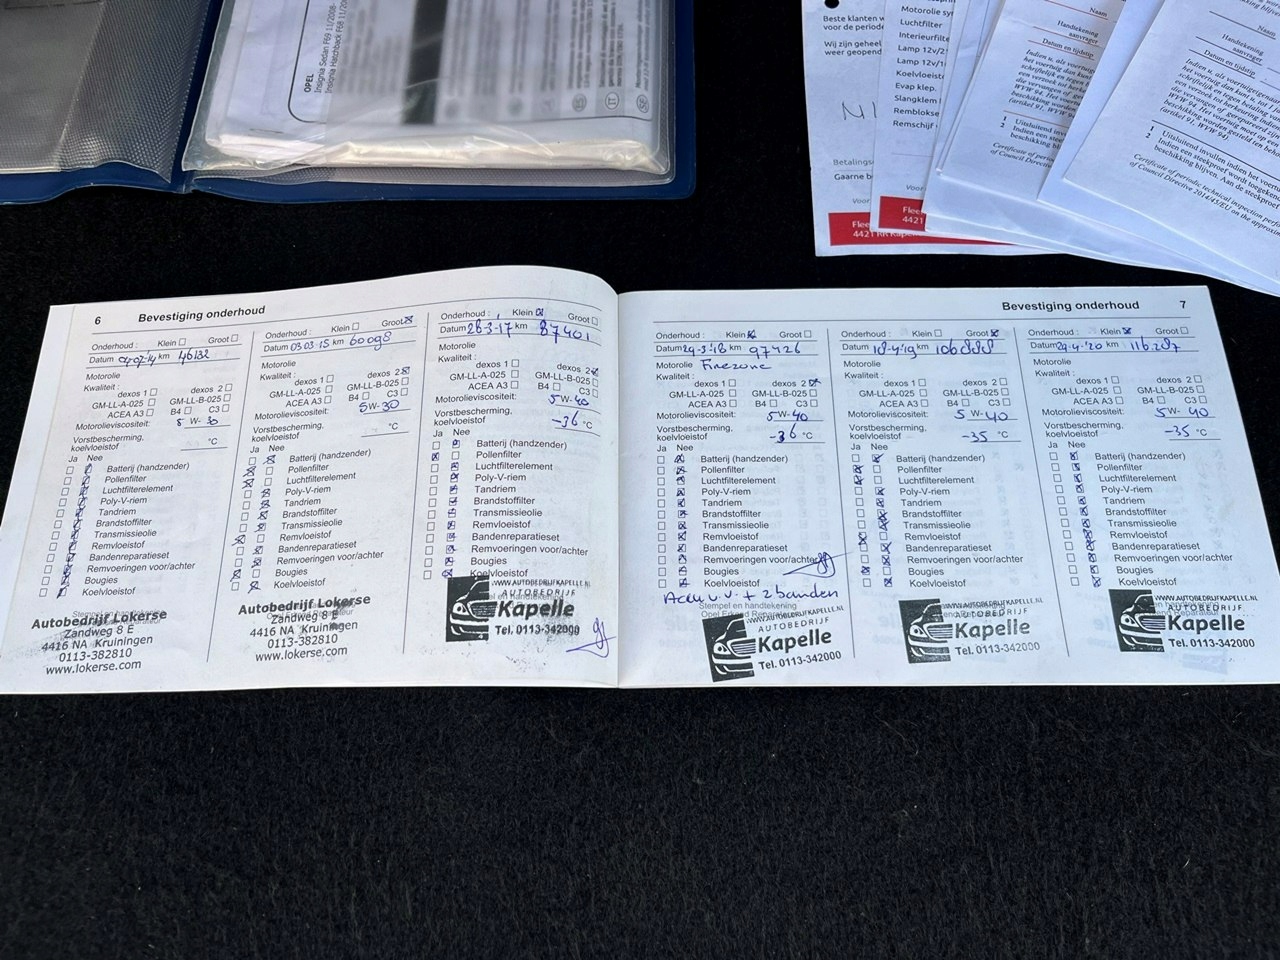 OPEL
Insignia Sedan F69 11/2008-
Insignia Hatchback F68 11/200
Beste klanten
voor de periode
Wij zijn geheel
weer geopend
Betalings
Gaarne b
Motorolie
Luchtfilter
Interieurfilte
Lamp 12v/2
Lamp 12v/
Koelvloeist
Evap klep.
Slangklem
Remblokse
Remschijf
Voor
Flee
4421
Flee
4421 RR Kapelle
Naam
Handtekening
aanvrager
Datum en tijdstip
Certificate of periodic
of Council Directive
Naam
Handtekening
aanvrager
Datum en tijdstip
Indien u, als voertuigeigenaar
Certificate of periodic technical inspection
of Council Directive 2014/45/EU on the
6 Bevestiging onderhoud
Onderhoud : Klein Groot
Datum 04-07-14 km 46132
Motorolie
Kwaliteit :
dexos 1 dexos 2
GM-LL-A-025 GM-LL-B-025
ACEA A3 B4 C3
Motorolieviscositeit: 5 W- 30
Vorstbescherming,
koelvloeistof °C
Ja Nee
Batterij (handzender)
Pollenfilter
Luchtfilterelement
Poly-V-riem
Tandriem
Brandstoffilter
Transmissieolie
Remvloeistof
Bandenreparatieset
Remvoeringen voor/achter
Bougies
Koelvloeistof
Autobedrijf Lokerse
Zandweg 8 E
4416 NA Kruiningen
0113-382810
www.lokerse.com
Onderhoud : Klein Groot
Datum 03 03-15 km 60098
Motorolie
Kwaliteit :
dexos 1 dexos 2
GM-LL-A-025 GM-LL-B-025
ACEA A3 B4 C3
Motorolieviscositeit: 5W-30
Vorstbescherming,
koelvloeistof °C
Ja Nee
Batterij (handzender)
Pollenfilter
Luchtfilterelement
Poly-V-riem
Tandriem
Brandstoffilter
Transmissieolie
Remvloeistof
Bandenreparatieset
Remvoeringen voor/achter
Bougies
Koelvloeistof
Autobedrijf Lokerse
Zandweg 8 E
4416 NA Kruiningen
0113-382810
www.lokerse.com
Onderhoud : Klein Groot
Datum 28-3-17 km 87401
Motorolie
Kwaliteit :
dexos 1 dexos 2
GM-LL-A-025 GM-LL-B-025
ACEA A3 B4 C3
Motorolieviscositeit: 5W-40
Vorstbescherming,
koelvloeistof -36 °C
Ja Nee
Batterij (handzender)
Pollenfilter
Luchtfilterelement
Poly-V-riem
Tandriem
Brandstoffilter
Transmissieolie
Remvloeistof
Bandenreparatieset
Remvoeringen voor/achter
Bougies
Koelvloeistof
WWW.AUTOBEDRIJFKAPELLE.NL
AUTOBEDRIJF
Kapelle
Tel. 0113-342000
Bevestiging onderhoud 7
Onderhoud : Klein Groot
Datum 29-3-'18 km 97426
Motorolie Firezone
Kwaliteit :
dexos 1 dexos 2
GM-LL-A-025 GM-LL-B-025
ACEA A3 B4 C3
Motorolieviscositeit: 5W-40
Vorstbescherming,
koelvloeistof -36 °C
Ja Nee
Batterij (handzender)
Pollenfilter
Luchtfilterelement
Poly-V-riem
Tandriem
Brandstoffilter
Transmissieolie
Remvloeistof
Bandenreparatieset
Remvoeringen voor/achter
Bougies
Koelvloeistof
Accu v.v. + 2 banden
Stempel en handtekening
Opel Erkend Reparateur
WWW.AUTOBEDRIJFKAPELLE.NL
AUTOBEDRIJF
Kapelle
Tel. 0113-342000
Onderhoud : Klein Groot
Datum 18-4-'19 km 106888
Motorolie
Kwaliteit :
dexos 1 dexos 2
GM-LL-A-025 GM-LL-B-025
ACEA A3 B4 C3
Motorolieviscositeit: 5 W-40
Vorstbescherming,
koelvloeistof -35 °C
Ja Nee
Batterij (handzender)
Pollenfilter
Luchtfilterelement
Poly-V-riem
Tandriem
Brandstoffilter
Transmissieolie
Remvloeistof
Bandenreparatieset
Remvoeringen voor/achter
Bougies
Koelvloeistof
WWW.AUTOBEDRIJFKAPELLE.NL
AUTOBEDRIJF
Kapelle
Tel. 0113-342000
Onderhoud : Klein Groot
Datum 29-4-'20 km 116287
Motorolie
Kwaliteit :
dexos 1 dexos 2
GM-LL-A-025 GM-LL-B-025
ACEA A3 B4 C3
Motorolieviscositeit: 5W-40
Vorstbescherming,
koelvloeistof -35 °C
Ja Nee
Batterij (handzender)
Pollenfilter
Luchtfilterelement
Poly-V-riem
Tandriem
Brandstoffilter
Transmissieolie
Remvloeistof
Bandenreparatieset
Remvoeringen voor/achter
Bougies
Koelvloeistof
WWW.AUTOBEDRIJFKAPELLE.NL
AUTOBEDRIJF
Kapelle
Tel. 0113-342000